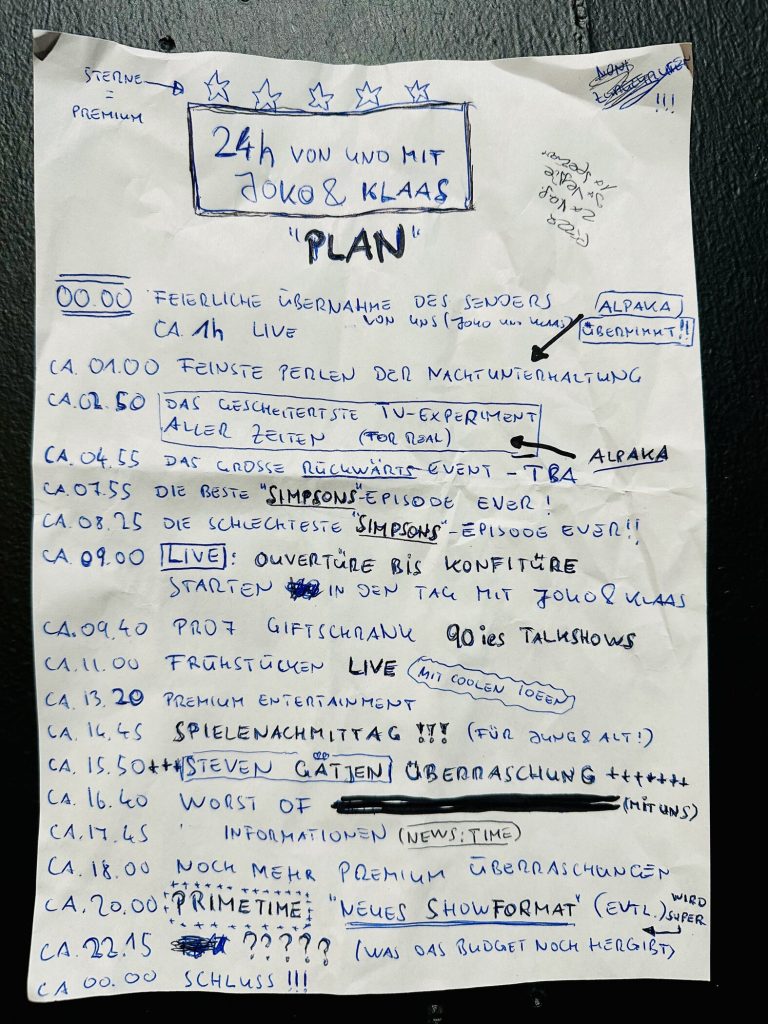 STERNE
=
PREMIUM
!!!
24h VON UND MIT
JOKO & KLAAS
"PLAN"
00.00 FEIERLICHE ÜBERNAHME DES SENDERS
VON UNS (JOKO UND KLAAS)
CA. 1h LIVE
ALPAKA
ÜBERNIMMT!!
CA. 01.00 FEINSTE PERLEN DER NACHTUNTERHALTUNG
CA. 02.50 DAS GESCHEITERTSTE TV-EXPERIMENT
ALLER ZEITEN (FOR REAL)
ALPAKA
CA. 04.55 DAS GROSSE RÜCKWÄRTS-EVENT - TBA
CA. 07.55 DIE BESTE "SIMPSONS"-EPISODE EVER!
CA. 08.25 DIE SCHLECHTESTE "SIMPSONS"-EPISODE EVER!!
CA. 09.00 LIVE: OUVERTÜRE BIS KONFITÜRE
STARTEN IN DEN TAG MIT JOKO & KLAAS
CA. 09.40 PRO7 GIFTSCHRANK 90ies TALKSHOWS
CA. 11.00 FRÜHSTÜCKEN LIVE MIT COOLEN IDEEN
CA. 13.20 PREMIUM ENTERTAINMENT
CA. 14.45 SPIELENACHMITTAG !!! (FÜR JUNG & ALT!)
CA. 15.50 +++ STEVEN GÄTJEN ÜBERRASCHUNG +++++++
CA. 16.40 WORST OF (MIT UNS)
CA. 17.45 INFORMATIONEN (NEWS:TIME)
CA. 18.00 NOCH MEHR PREMIUM ÜBERRASCHUNGEN
CA. 20.00 PRIMETIME "NEUES SHOWFORMAT" (EVTL.) WIRD
SUPER
CA. 22.15 ????? (WAS DAS BUDGET NOCH HERGIBT)
CA 00.00 SCHLUSS !!!